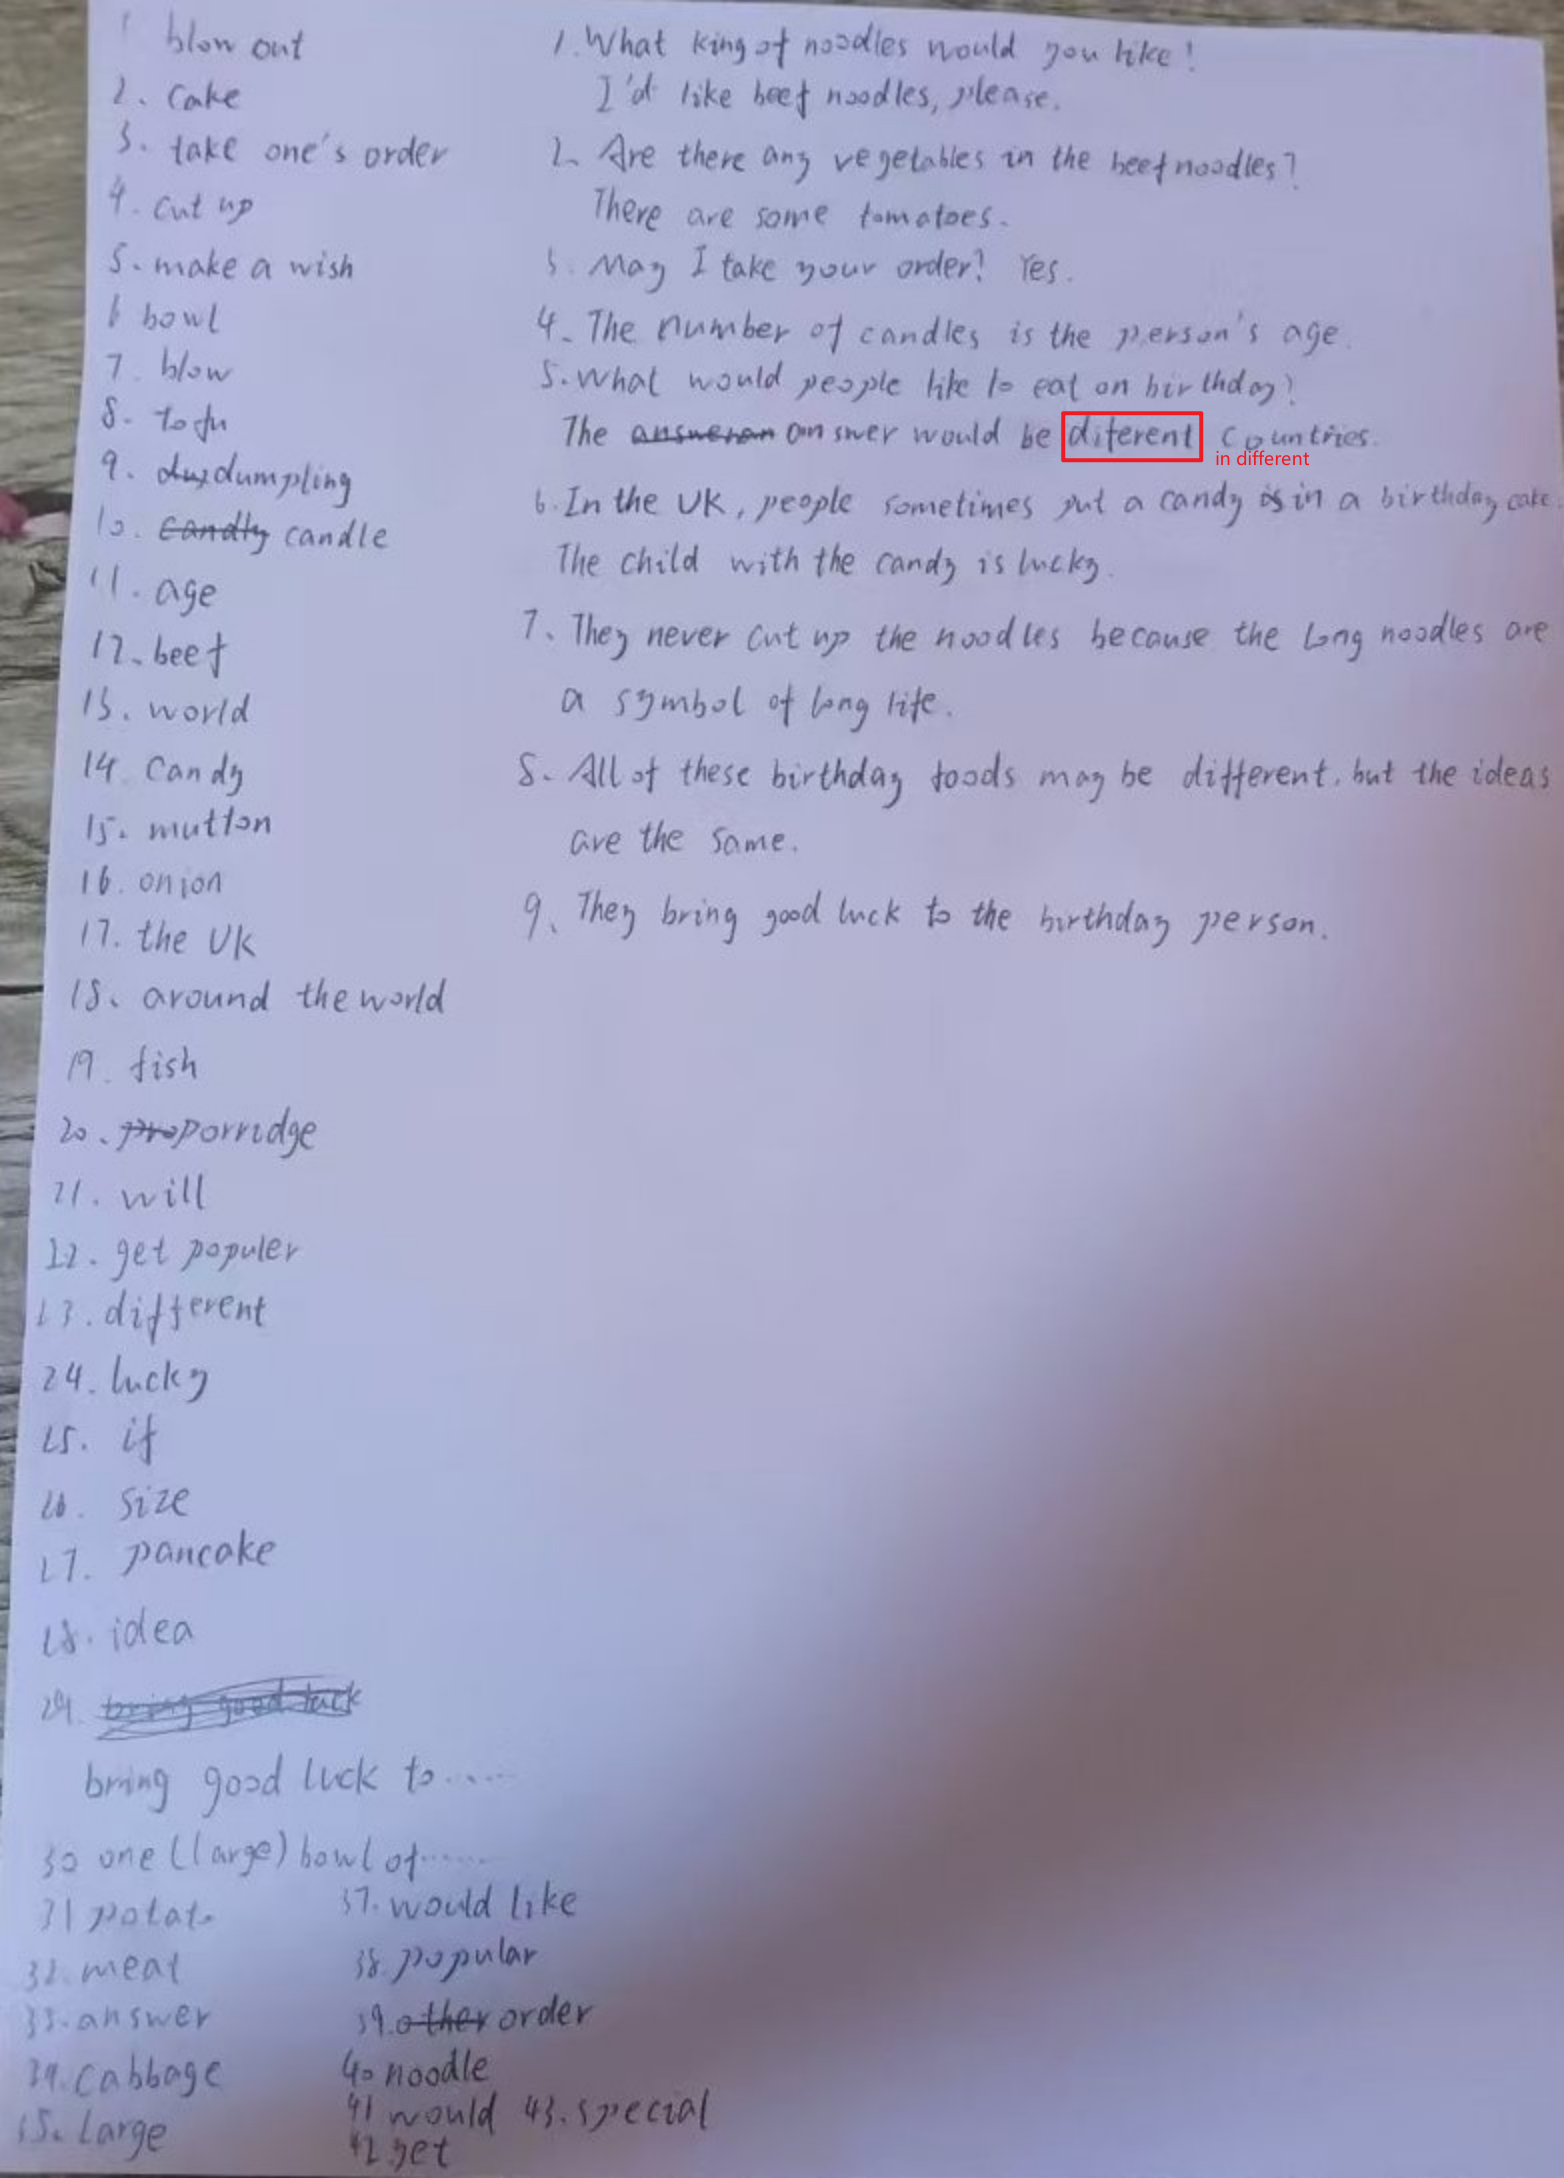 1 blow out
2. cake
3. take one's order
4. cut up
5. make a wish
6 bowl
7. blow
8. tofu
9. dumpling
10. candle
11. age
12. beef
13. world
14. candy
15. mutton
16. onion
17. the UK
18. around the world
19. fish
20. porridge
21. will
22. get populer
23. different
24. lucky
25. if
26. size
27. pancake
28. idea
29. bring good luck
bring good luck to ......
30 one (large) bowl of ......
31 potato
32. meat
33. answer
34. cabbage
35. large
37. would like
38. popular
39. other order
40 noodle
41 would
42. get
43. special
1. What king of noodles would you like?
I'd like beef noodles, please.
2. Are there any vegetables in the beef noodles?
There are some tomatoes.
3. May I take your order? Yes.
4. The number of candles is the person's age.
5. What would people like to eat on birthday?
The answer would be diferent countries.
in different
6. In the UK, people sometimes put a candy in a birthday cake.
The child with the candy is lucky.
7. They never cut up the noodles because the long noodles are
a symbol of long life.
8. All of these birthday foods may be different, but the ideas
are the same.
9. They bring good luck to the birthday person.